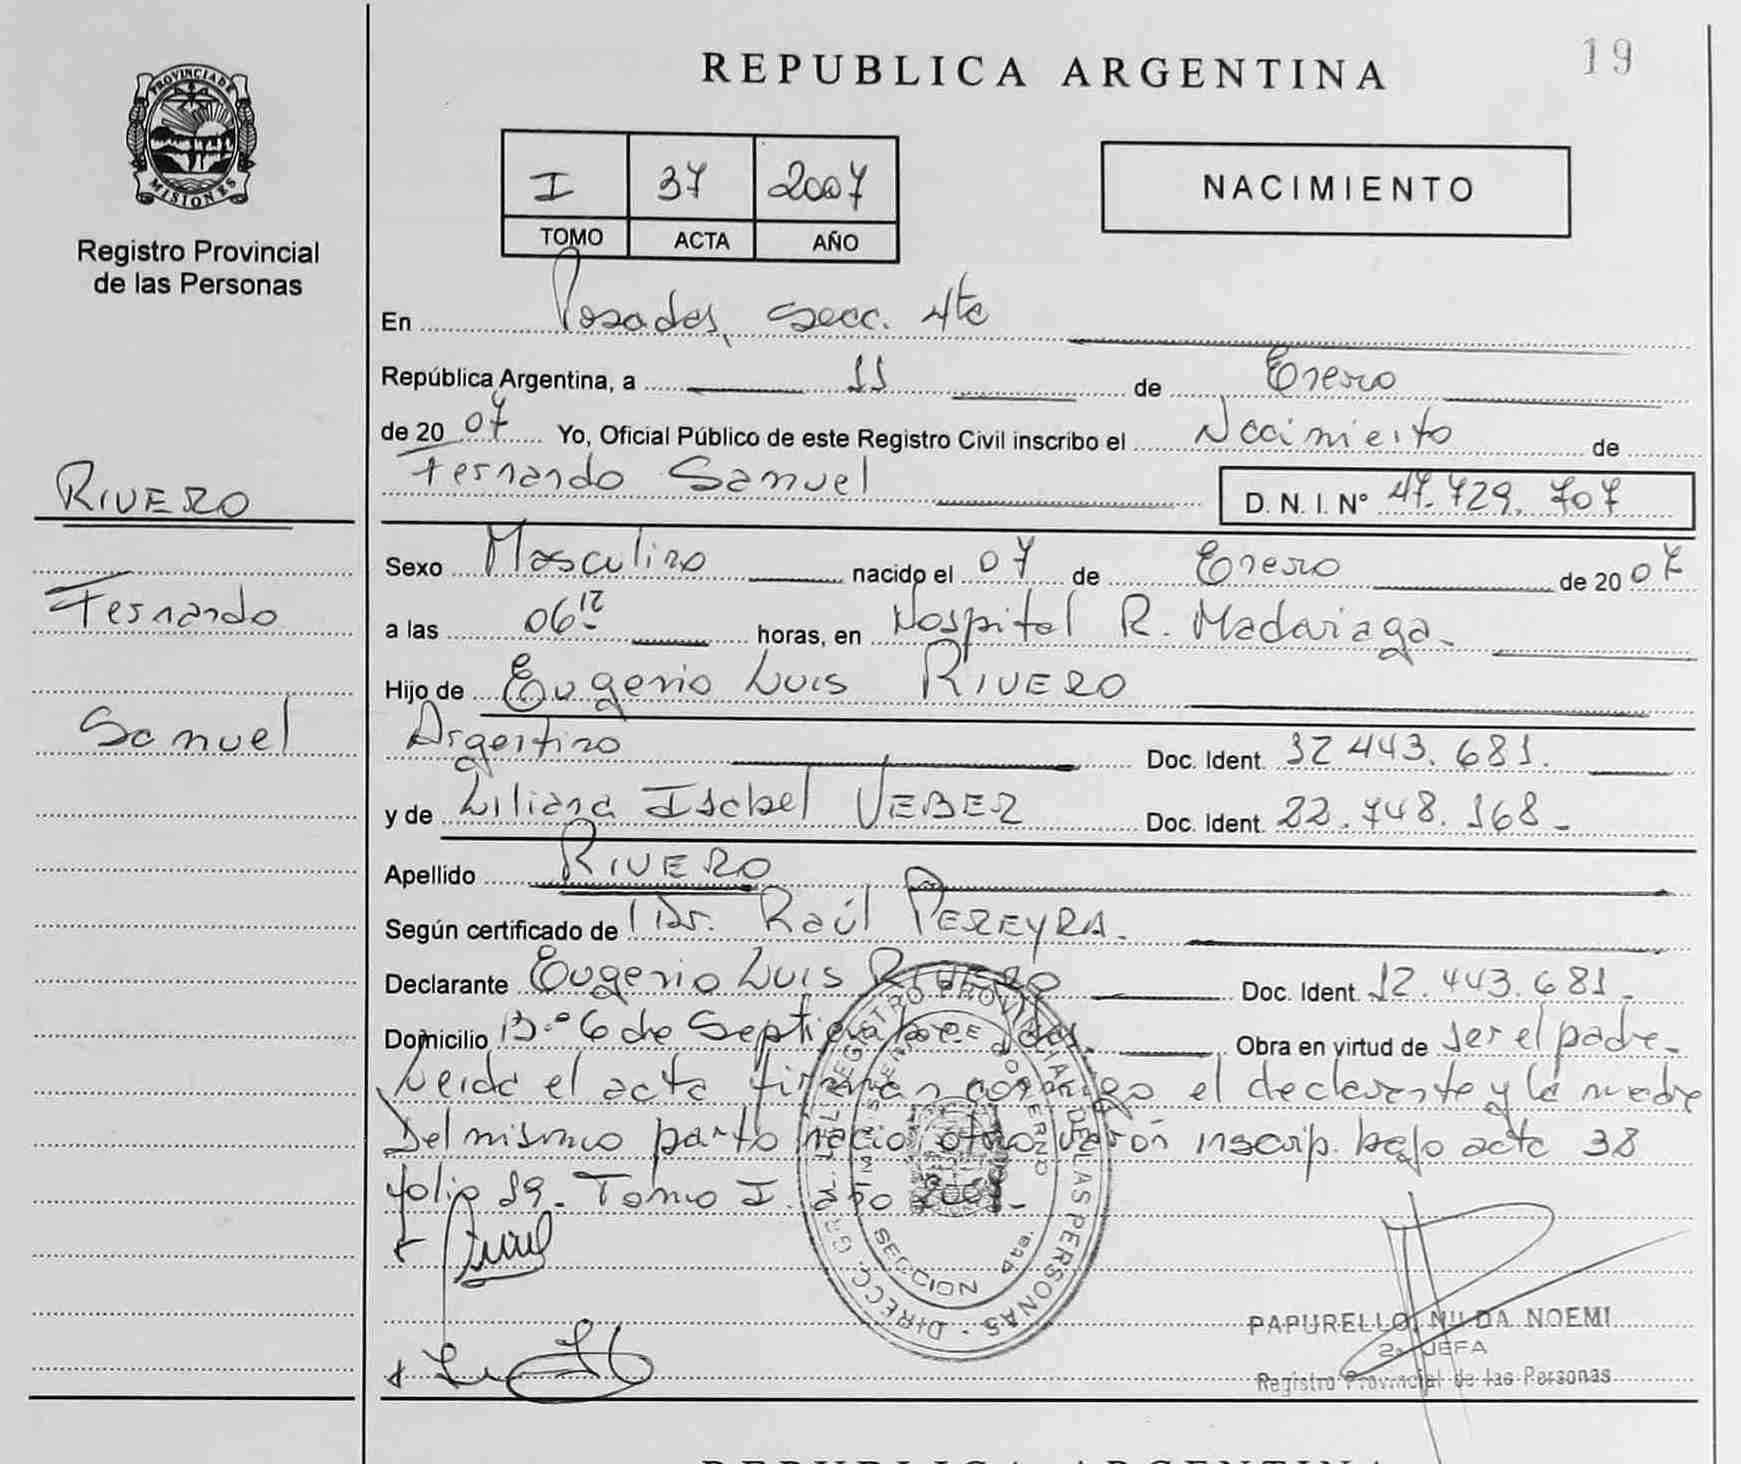 REPUBLICA ARGENTINA
19
PROVINCIA DE
MISIONES
Registro Provincial
de las Personas
I 37 2007
TOMO ACTA AÑO
NACIMIENTO
En Posadas, Secc. 4ta
República Argentina, a 11 de Enero
de 2007 Yo, Oficial Público de este Registro Civil inscribo el Nacimiento de
Fernando Samuel D.N.I. Nº 47.729.707
RIVERO
Fernando
Samuel
Sexo Masculino nacido el 07 de Enero de 2007
a las 06 12 horas, en Hospital R. Madariaga.
Hijo de Eugenio Luis RIVERO
Argentino Doc. Ident. 12.443.681.
y de Liliana Isabel VEBER Doc. Ident. 22.748.168.
Apellido RIVERO
Según certificado de Dr. Raúl PEREYRA.
Declarante Eugenio Luis RIVERO Doc. Ident. 12.443.681.
Domicilio Bº 6 de Septiembre Pdas. Obra en virtud de ser el padre.
Leida el acta firman conmigo el declarante y la madre
Del mismo parto nacio otro varón inscrip. bajo acta 38
folio 19. Tomo I. año 2007.
DIRECC. GRAL. REGISTRO PROVINCIAL DE LAS PERSONAS
MINISTERIO DE GOBIERNO
SECCION 4ta.
PAPURELLO, NILDA NOEMI
2a. JEFA
Registro Provincial de las Personas
REPUBLICA ARGENTINA